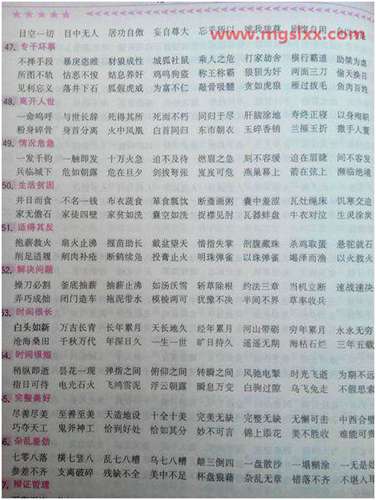 www.mgslxx.com
目空一切 目中无人 居功自傲 妄自尊大 忘乎所以 唯我独尊 刚愎自用
47. 专干坏事
不择手段 暴戾恣睢 财狼成性 城狐社鼠 乘人之危 打家劫舍 横行霸道
所图不轨 怙恶不悛 姑息养奸 鸡鸣狗盗 称王称霸 狼狈为奸 两面三刀
见利忘义 落井下石 狐假虎威 为富不仁 敲骨吸髓 贪如虎狼 雁过拔毛 鱼肉百姓
48. 离开人世
一命呜呼 与世长辞 死得其所 死不瞑目 同归于尽 肝脑涂地 寿终正寝 以身殉职
粉身碎骨 身首分离 火中凤凰 白首同归 东市朝衣 玉碎香销 兰摧玉折
49. 情况危急
一发千钧 一触即发 十万火急 迫不及待 燃眉之急 刻不容缓 迫在眉睫 间不容发
兵临城下 危如朝露 危在旦夕 剑拔弩张 岌岌可危 燕巢幕上 箭在弦上 濒临绝境
50. 生活贫困
并日而食 不名一钱 布衣蔬食 箪食瓢饮 断齑画粥 囊中羞涩 瓦灶绳床 饥寒交迫
家无儋石 家徒四壁 家贫如洗 室如悬磬 捉襟见肘 瓦器蚌盘 牛衣对泣 生灵涂炭
51. 适得其反
抱薪救火 扇火止沸 揠苗助长 戴盆望天 惜指失掌 剖腹藏珠 杀鸡取蛋 悬驼就石
削足适履 剜肉补疮 断鹤续凫 投膏止火 明珠弹雀 饮鸩止渴 买椟还珠 以火救火
52. 解决问题
操刀必割 釜底抽薪 抽薪止沸 如汤沃雪 斩草除根 约法三章 当机立断 速战速决
弄巧成拙 闭门造车 拖泥带水 模棱两可 犹豫不决 半间不界 草率收兵
53. 时间很长
白头如新 万古长青 长年累月 天长地久 经年累月 河山带砺 穷年累月 永永无穷
沧海桑田 千秋万代 年深日久 一生一世 旷日持久 遥遥无期 海枯石烂 三年五载
54. 时间很短
稍纵即逝 昙花一现 弹指之间 俯仰之间 转瞬之间 风驰电掣 时光飞逝 为期不远
指日可待 电光石火 飞鸿雪泥 浮云朝露 瞬息万变 白驹过隙 乌飞兔走
55. 完整美好
尽善尽美 至善至美 天造地设 十全十美 完美无缺 完整无缺 无懈可击 中西合璧
巧夺天工 鬼斧神工 恰到好处 妙不可言 完好无损 锦上添花 美不胜收
56. 杂乱差劲
七零八落 横七竖八 乱七八糟 乌七八糟 颠三倒四 一盘散沙 一塌糊涂
参差不齐 支离破碎 残缺不全 美中不足 杯盘狼藉 杂乱无章 错落不齐 不堪入耳
57. 辩证管理